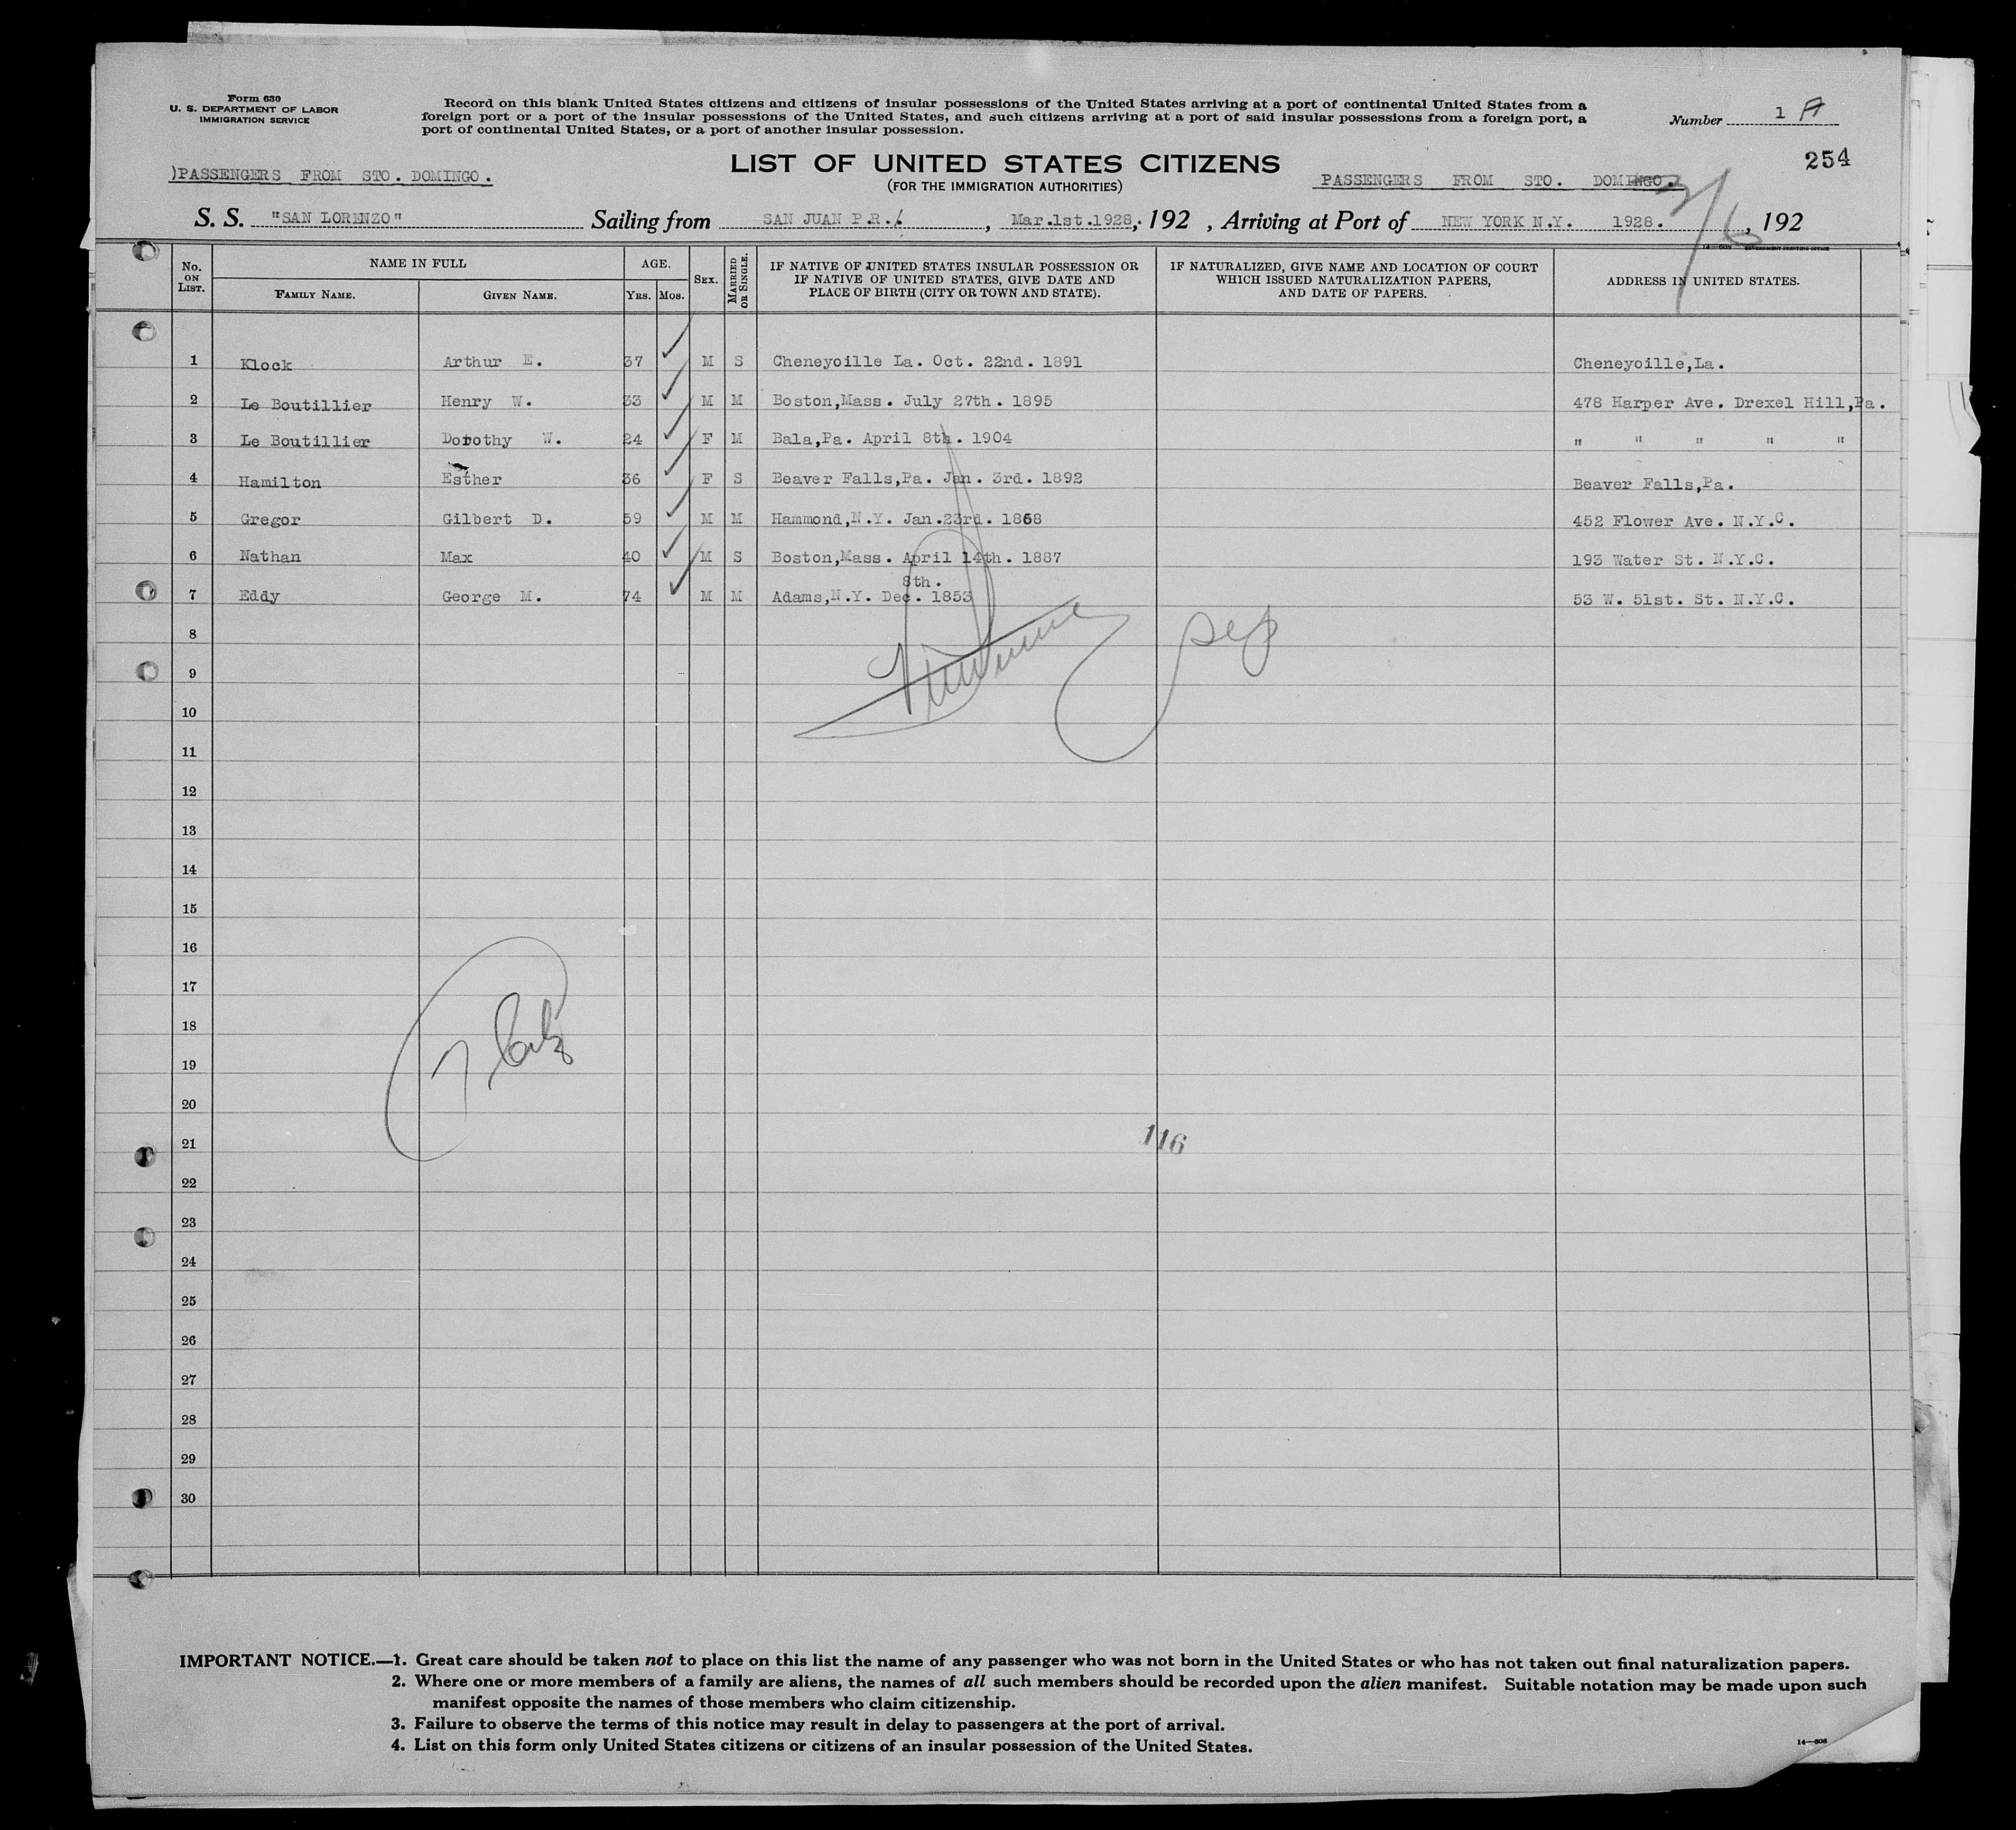 Form 630
U. S. DEPARTMENT OF LABOR
IMMIGRATION SERVICE
Record on this blank United States citizens and citizens of insular possessions of the United States arriving at a port of continental United States from a
foreign port or a port of the insular possessions of the United States, and such citizens arriving at a port of said insular possessions from a foreign port, a
port of continental United States, or a port of another insular possession.
Number 1 A
254
LIST OF UNITED STATES CITIZENS
(FOR THE IMMIGRATION AUTHORITIES)
)PASSENGERS FROM STO. DOMINGO.
PASSENGERS FROM STO. DOMINGO.
S. S. "SAN LORENZO" Sailing from SAN JUAN P.R./. , Mar.1st.1928,. 192 , Arriving at Port of NEW YORK N.Y. 1928. 3/6, 192
No. ON LIST. NAME IN FULL FAMILY NAME. GIVEN NAME. AGE. YRS. MOS. SEX. MARRIED OR SINGLE. IF NATIVE OF UNITED STATES INSULAR POSSESSION OR IF NATIVE OF UNITED STATES, GIVE DATE AND PLACE OF BIRTH (CITY OR TOWN AND STATE). IF NATURALIZED, GIVE NAME AND LOCATION OF COURT WHICH ISSUED NATURALIZATION PAPERS, AND DATE OF PAPERS. ADDRESS IN UNITED STATES.
1 Klock Arthur E. 37 M S Cheneyoille La. Oct. 22nd. 1891 Cheneyoille,La.
2 Le Boutillier Henry W. 33 M M Boston,Mass. July 27th. 1895 478 Harper Ave. Drexel Hill,Pa.
3 Le Boutillier Dorothy W. 24 F M Bala,Pa. April 8th. 1904 " " " " "
4 Hamilton Esther 36 F S Beaver Falls,Pa. Jan. 3rd. 1892 Beaver Falls,Pa.
5 Gregor Gilbert D. 59 M M Hammond,N.Y. Jan.23rd. 1868 452 Flower Ave. N.Y.C.
6 Nathan Max 40 M S Boston,Mass. April 14th. 1887 193 Water St. N.Y.C.
8th.
7 Eddy George M. 74 M M Adams,N.Y. Dec. 1853 53 W. 51st. St. N.Y.C.
8
9
10
11
12
13
14
15
16
17
18
19
20
21
116
22
23
24
25
26
27
28
29
30
IMPORTANT NOTICE.—1. Great care should be taken not to place on this list the name of any passenger who was not born in the United States or who has not taken out final naturalization papers.
2. Where one or more members of a family are aliens, the names of all such members should be recorded upon the alien manifest. Suitable notation may be made upon such
manifest opposite the names of those members who claim citizenship.
3. Failure to observe the terms of this notice may result in delay to passengers at the port of arrival.
4. List on this form only United States citizens or citizens of an insular possession of the United States.
14—608